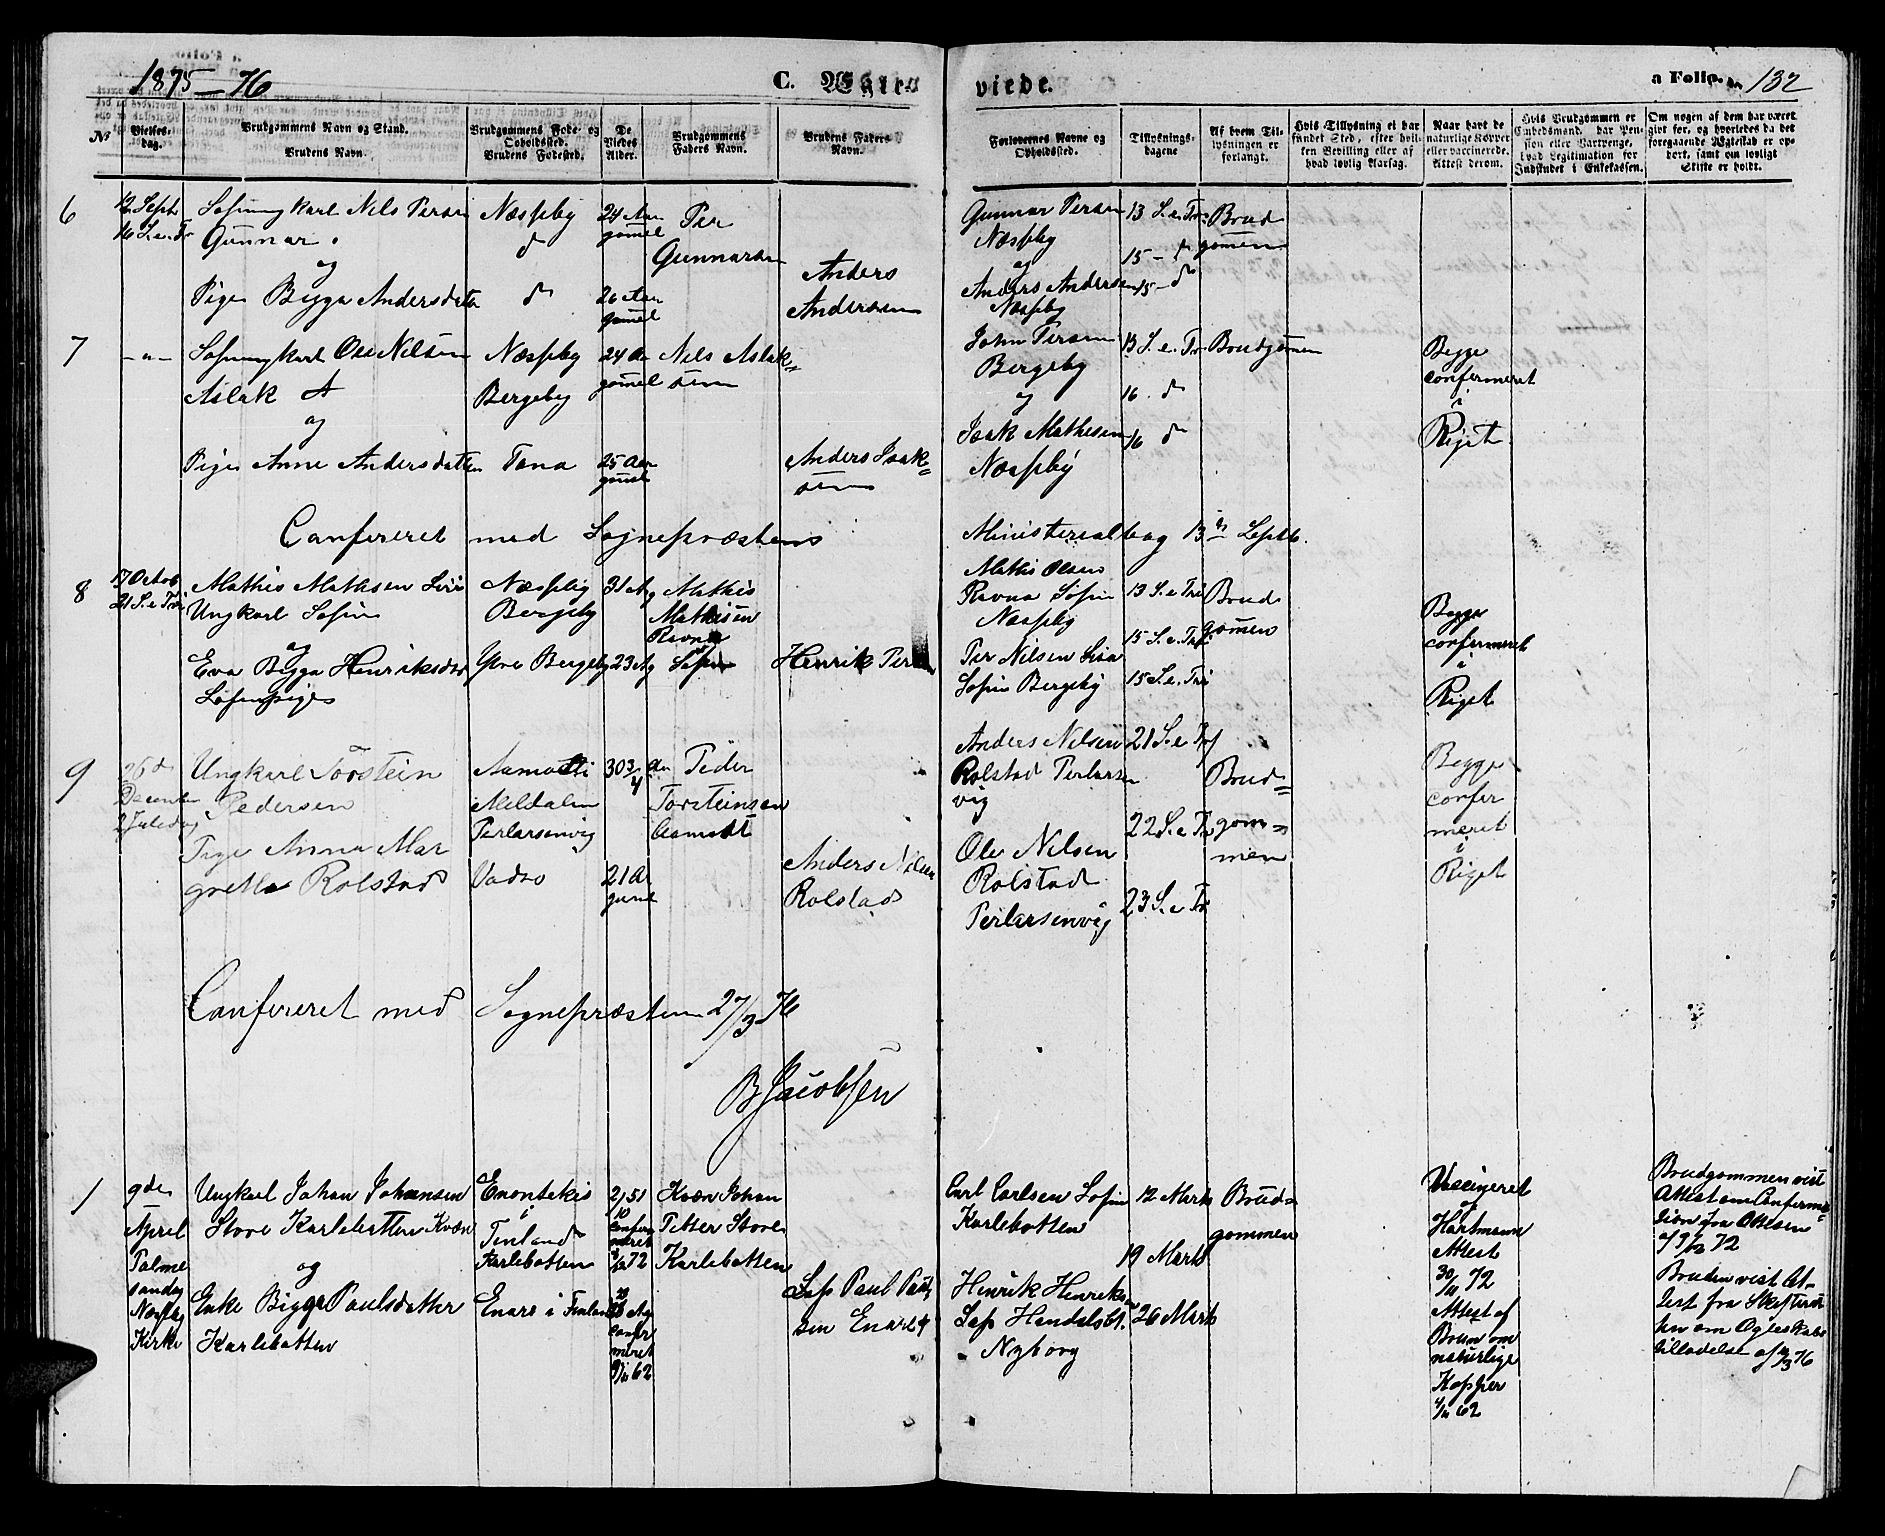 1875–76
C. Ægte viede.
a Folio. 132
No
Vielses-dag.
Brudgommens Navn og Stand.
Brudens Navn.
Brudgommens Føde- og Opholdssted.
Brudens Fødested.
De Viedes Alder.
Brudgommens Faders Navn.
Brudens Faders Navn.
Forlovernes Navne og Opholdssted.
Tillysnings-dagene
Af hvem Tillysningen er forlangt.
Hvis Tillysning ei har fundet Sted, efter hvilken Bevilling eller af hvad lovlig Aarsag.
Naar havt de naturlige Kopper eller vaccinerede. Attest derom.
Hvis Brudgommen er Embedsmand, har Pension eller Vartpenge, hvad Legitimation for Indskudet i Enkekassen.
Om nogen af dem har været gift før, og hvorledes da det foregaaende Ægteskab er ophørt, samt om lovligt Skifte er holdt.
6
12 Septr
16 S. e. Tr
Ungkarl Nils Persen
Gunnar
og
Pige Bigga Andersdatter
Næsseby
d
d
24 Aar gamel
26 Aar gamel
Per Gunnarsen
Anders Andersen
Gunnar Persen
Næsseby
og
Anders Andersen
Næsseby
13 S. e. Tr
15 – d
15 – d
Brudgomen
7
–"–
Ungkarl Ole Nilsen
Aslak
og
Pige Anne Andersdatter
Næsseby
Bergeby
Tana
24 Aar gamel
25 Aar gamel
Nils Aslak=sen
Anders Isak=sen
John Persen
Bergeby
og
Isak Mathisen
Næsseby
13 S. e. Tr
16 . d
16 d
Brudgomen
Begge confermeret i Riget
Confereret med Sognepræstens Ministerialbog 13de Septb.
8
17 Octob
21 S. e Tri
Mathis Mathsen Siri
Ungkarl
og
Eva Bigga Henriksdtr
Næsseby
Bergeby
Bergeby
31 A
23 A
Mathis Mathisen Ravna
Henrik Persen
Mathis Olsen
Ravna
Næsseby
Per Nilsen
Bergeby
13 S. e Tri
15 S. e. Tri
15 S. e. Tri
Brudgomen
Begge confermeret i Riget
9
26de December
2 Juledag
Ungkarl Torstein
Pedersen
Pige Anna Mar
grethe Rolstad
Aamotti
Meldalen
Perlarsenvig
Vadsø
30 3/4
21 Aar gamel
Peder
Torsteinsen
Aamott
Anders Nilsen
Rolstad
Anders Nilsen
Rolstad Perlarsen
vig
Ole Nilsen
Rolstad
Perlarsenvig
21 S. e Tr
22 S. e Tr
23 S. e Tr
Brud=
gom=
men
Begge confermeret i Riget
Confereret med Sognepræsten 27/3 76
B Jacobsen
1
9de April
Palmesøndag
Næsseby Kirke
Ungkarl Johan Johansen
Store Karlebotten Kvæn
og
Enke Bigga Paulsdatter
Karlebotten
Enontekis
i
Finland
Karlebotten
Enare i Finland
2/10 51
Confermeret
72
Confermeret
62
Kvæn Johan
Petter Store
Karlebotten
Lap Paul Paul
sen Enare
Carl Carlsen
Karlebotten
Henrik Henriksen
Lap
Nyborg
12 Marts
19 Marts
26 Marts
Brudgommen
Vacineret af Hartmann
Attest
30/11 72
Attest af Brun om naturlige Kopper
62
Brudgommen vist
Attest om Confirmation fra Ottesen
72
Bruden vist Attest fra Skifteretten om Ægteskabs tilladelse
76